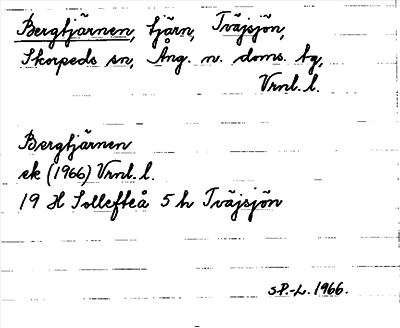 Bergtjärnen, tjärn, Tväjsjön,
Skorpeds sn, Ång. n. doms. tg,
Vrnl. l.
Bergtjärnen
ek (1966) Vrnl. l.
19 H Sollefteå 5 h Tväjsjön
SP.-L. 1966.